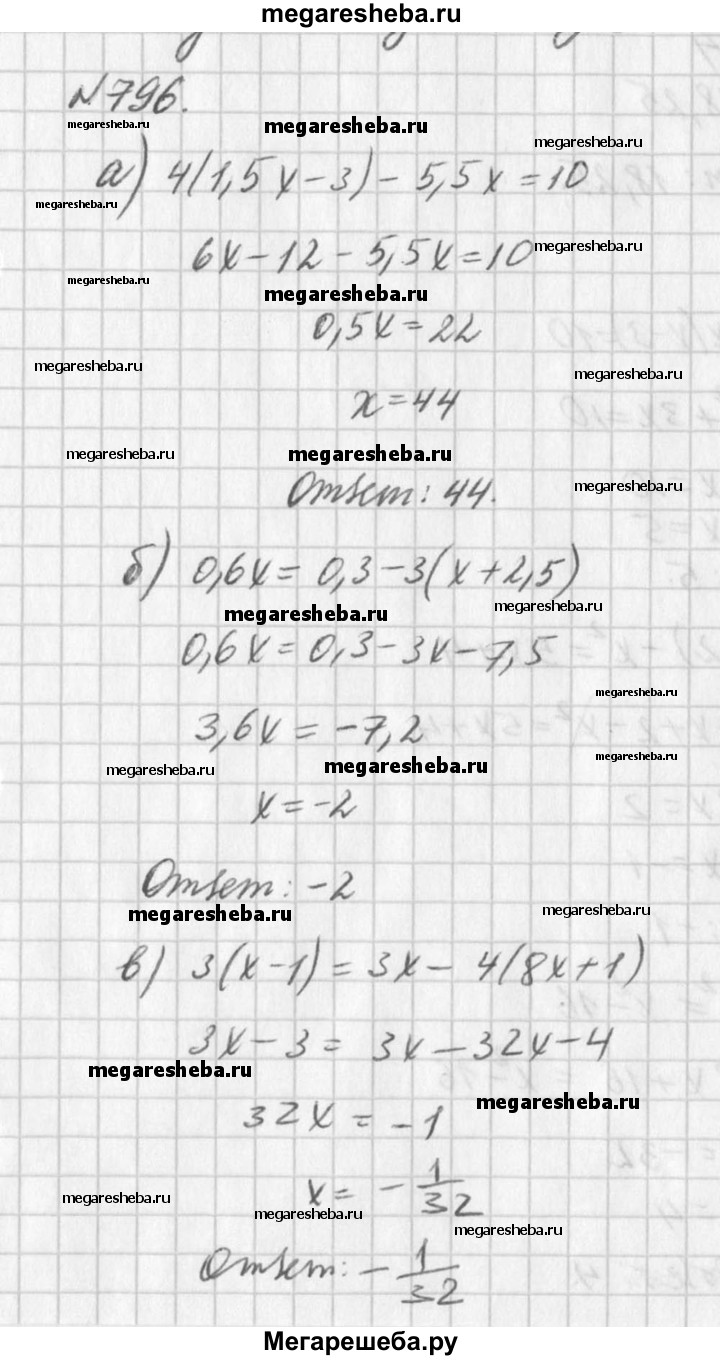 megaresheba.ru
№796.
megaresheba.ru
megaresheba.ru
megaresheba.ru
а) 4(1,5x-3)-5,5x=10
megaresheba.ru
6x-12-5,5x=10
megaresheba.ru
megaresheba.ru
megaresheba.ru
0,5x=22
megaresheba.ru
megaresheba.ru
x=44
megaresheba.ru
megaresheba.ru
Ответ: 44.
megaresheba.ru
б) 0,6x=0,3-3(x+2,5)
megaresheba.ru
megaresheba.ru
0,6x=0,3-3x-7,5
megaresheba.ru
3,6x=-7,2
megaresheba.ru
megaresheba.ru
megaresheba.ru
x=-2
Ответ: -2
megaresheba.ru
megaresheba.ru
в) 3(x-1)=3x-4(8x+1)
3x-3=3x-32x-4
megaresheba.ru
megaresheba.ru
32x=-1
x=-1/32
megaresheba.ru
megaresheba.ru
megaresheba.ru
Ответ: -1/32
Мегарешеба.ру